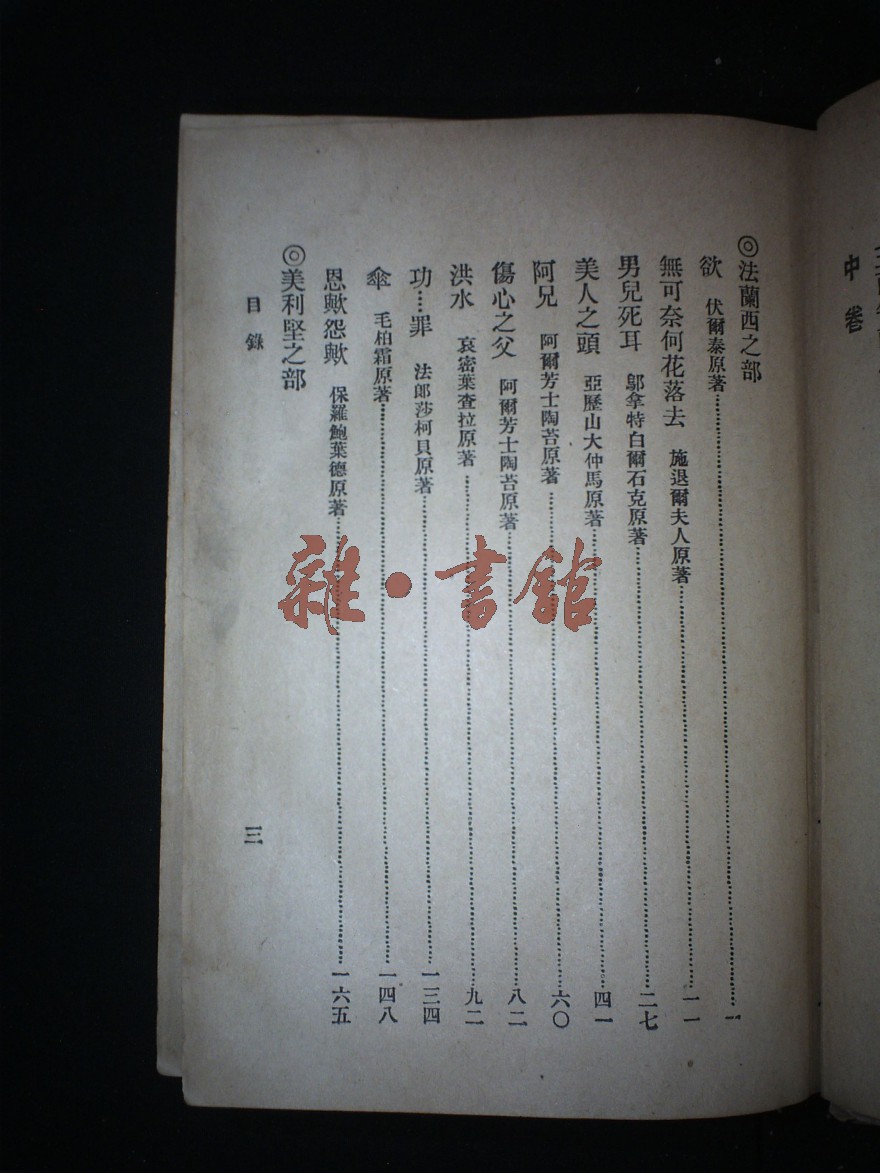 中卷
◎法蘭西之部
欲 伏爾泰原著……一
無可奈何花落去 施退爾夫人原著……一一
男兒死耳 鄔拿特白爾石克原著……二七
美人之頭 亞歷山大仲馬原著……四一
阿兄 阿爾芳士陶苔原著……六〇
傷心之父 阿爾芳士陶苔原著……八二
洪水 哀密葉查拉原著……九二
功……罪 法郎莎柯貝原著……一三四
傘 毛柏霜原著……一四八
恩歟怨歟 保羅鮑葉德原著……一六五
◎美利堅之部
目錄
三
雜·書館